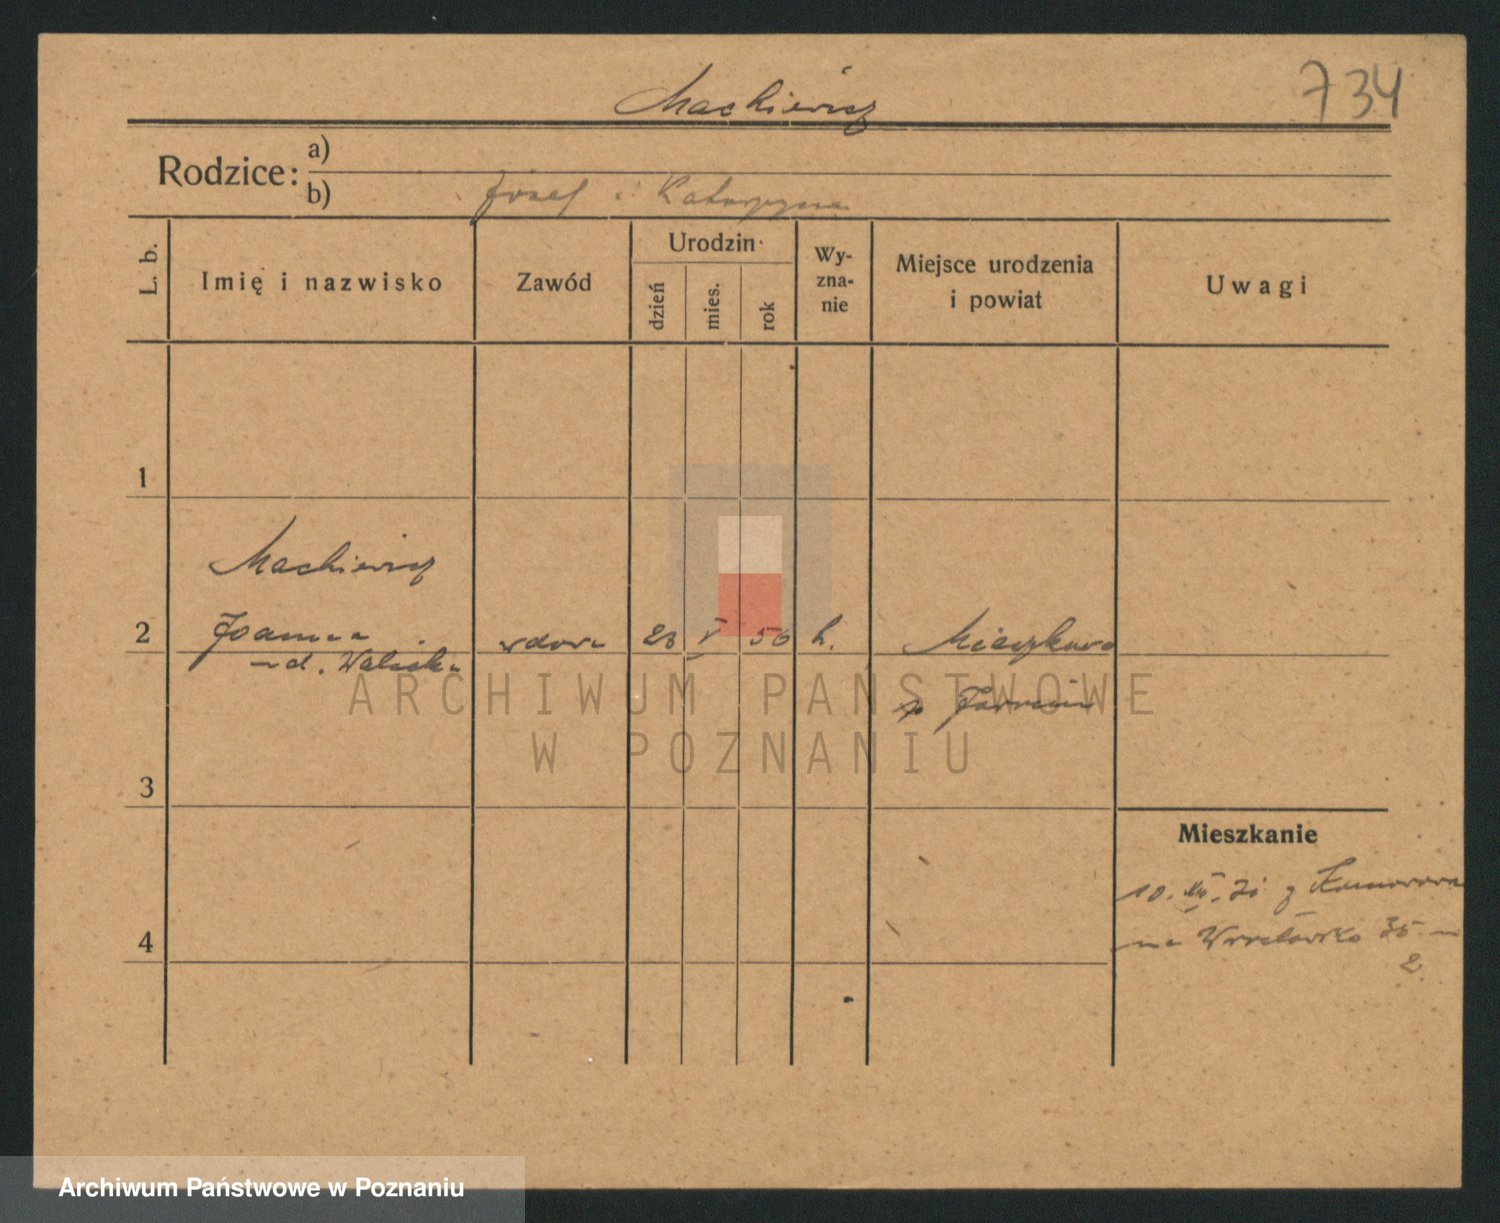 Mackiewicz
734
Rodzice:
a)
b) Józef i Katarzyna
L. b.
Imię i nazwisko
Zawód
Urodzin
dzień
mies.
rok
Wy-
zna-
nie
Miejsce urodzenia
i powiat
Uwagi
1
Mackiewicz
2 Joanna wdowa 23 V 56 k. Mieszkowo
3
p Jarocin
Mieszkanie
10. XII. z Komorowa
4
na 35
2
ARCHIWUM PAŃSTWOWE
W POZNANIU
Archiwum Państwowe w Poznaniu